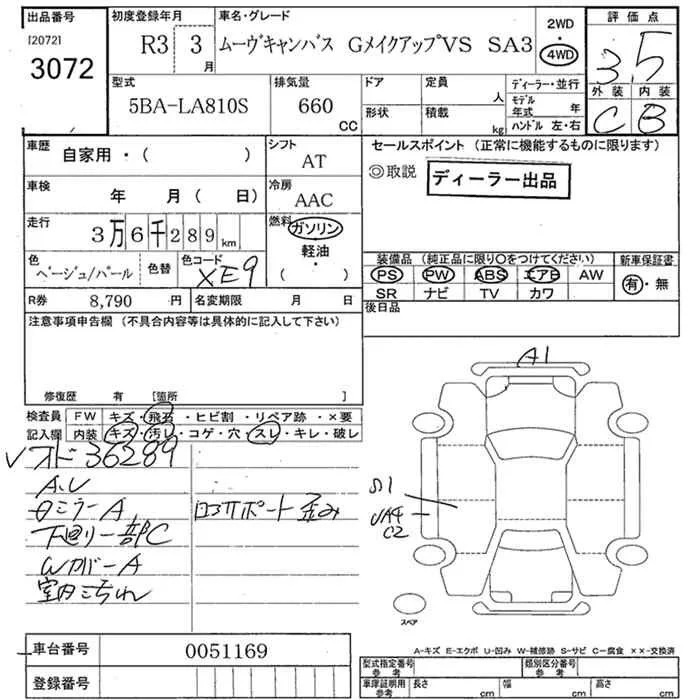 出品番号 初度登録年月 車名・グレード 2WD 評価点
[2072] R3 3月 ムーヴキャンバス GメイクアップVS SA3 4WD 3.5
3072
型式 排気量 ドア 定員 人 ディーラー・並行 外装 内装
5BA-LA810S 660 CC 形状 積載 kg モデル年式 年 C B
ハンドル 左・右
車歴 自家用・( ) シフト AT セールスポイント (正常に機能するものに限ります)
◎取説 ディーラー出品
車検 年 月( 日) 冷房 AAC
走行 3万6千289km 燃料 ガソリン・軽油・( )
色 ベージュ/パール 色替 色コード XE9
装備品 (純正品に限り○をつけてください) 新車保証書
PS PW ABS エアB AW 有・無
SR ナビ TV カワ
R券 8,790円 名変期限 月 日 後日品
注意事項申告欄 (不具合内容等は具体的に記入して下さい)
修復歴 有 [箇所 ]
検査員 FW キズ・飛石・ヒビ割・リペア跡・×要
記入欄 内装 キズ・汚レ・コゲ・穴・スレ・キレ・破レ
A1
レオド36289
A.U
ミラーA ポート歪み
下廻り一部C
WカバーA
室内こちれ
S1
UA4
C2
スペア
車台番号 0051169
登録番号
A-キズ E-エクボ U-凹み W-補修跡 S-サビ C-腐食 ××-交換済
型式指定番号 参考 類別区分番号 参考
車庫証明用 参考 長さ cm 幅 cm 高さ cm